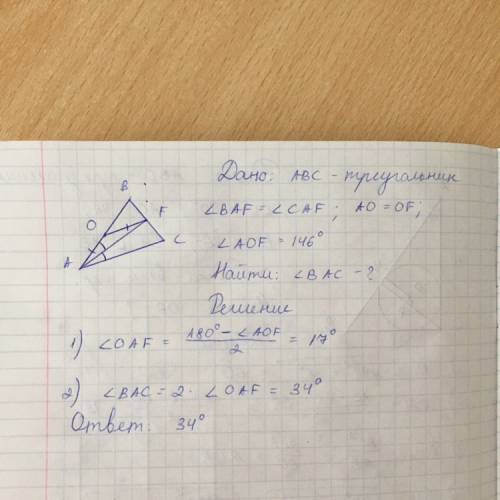 B
O
F
C
A
Дано: ABC - треугольник
∠BAF = ∠CAF ; AO = OF;
∠AOF = 146°
Найти: ∠BAC - ?
Решение
1) ∠OAF = (180° - ∠AOF)/2 = 17°
2) ∠BAC = 2 · ∠OAF = 34°
Ответ: 34°